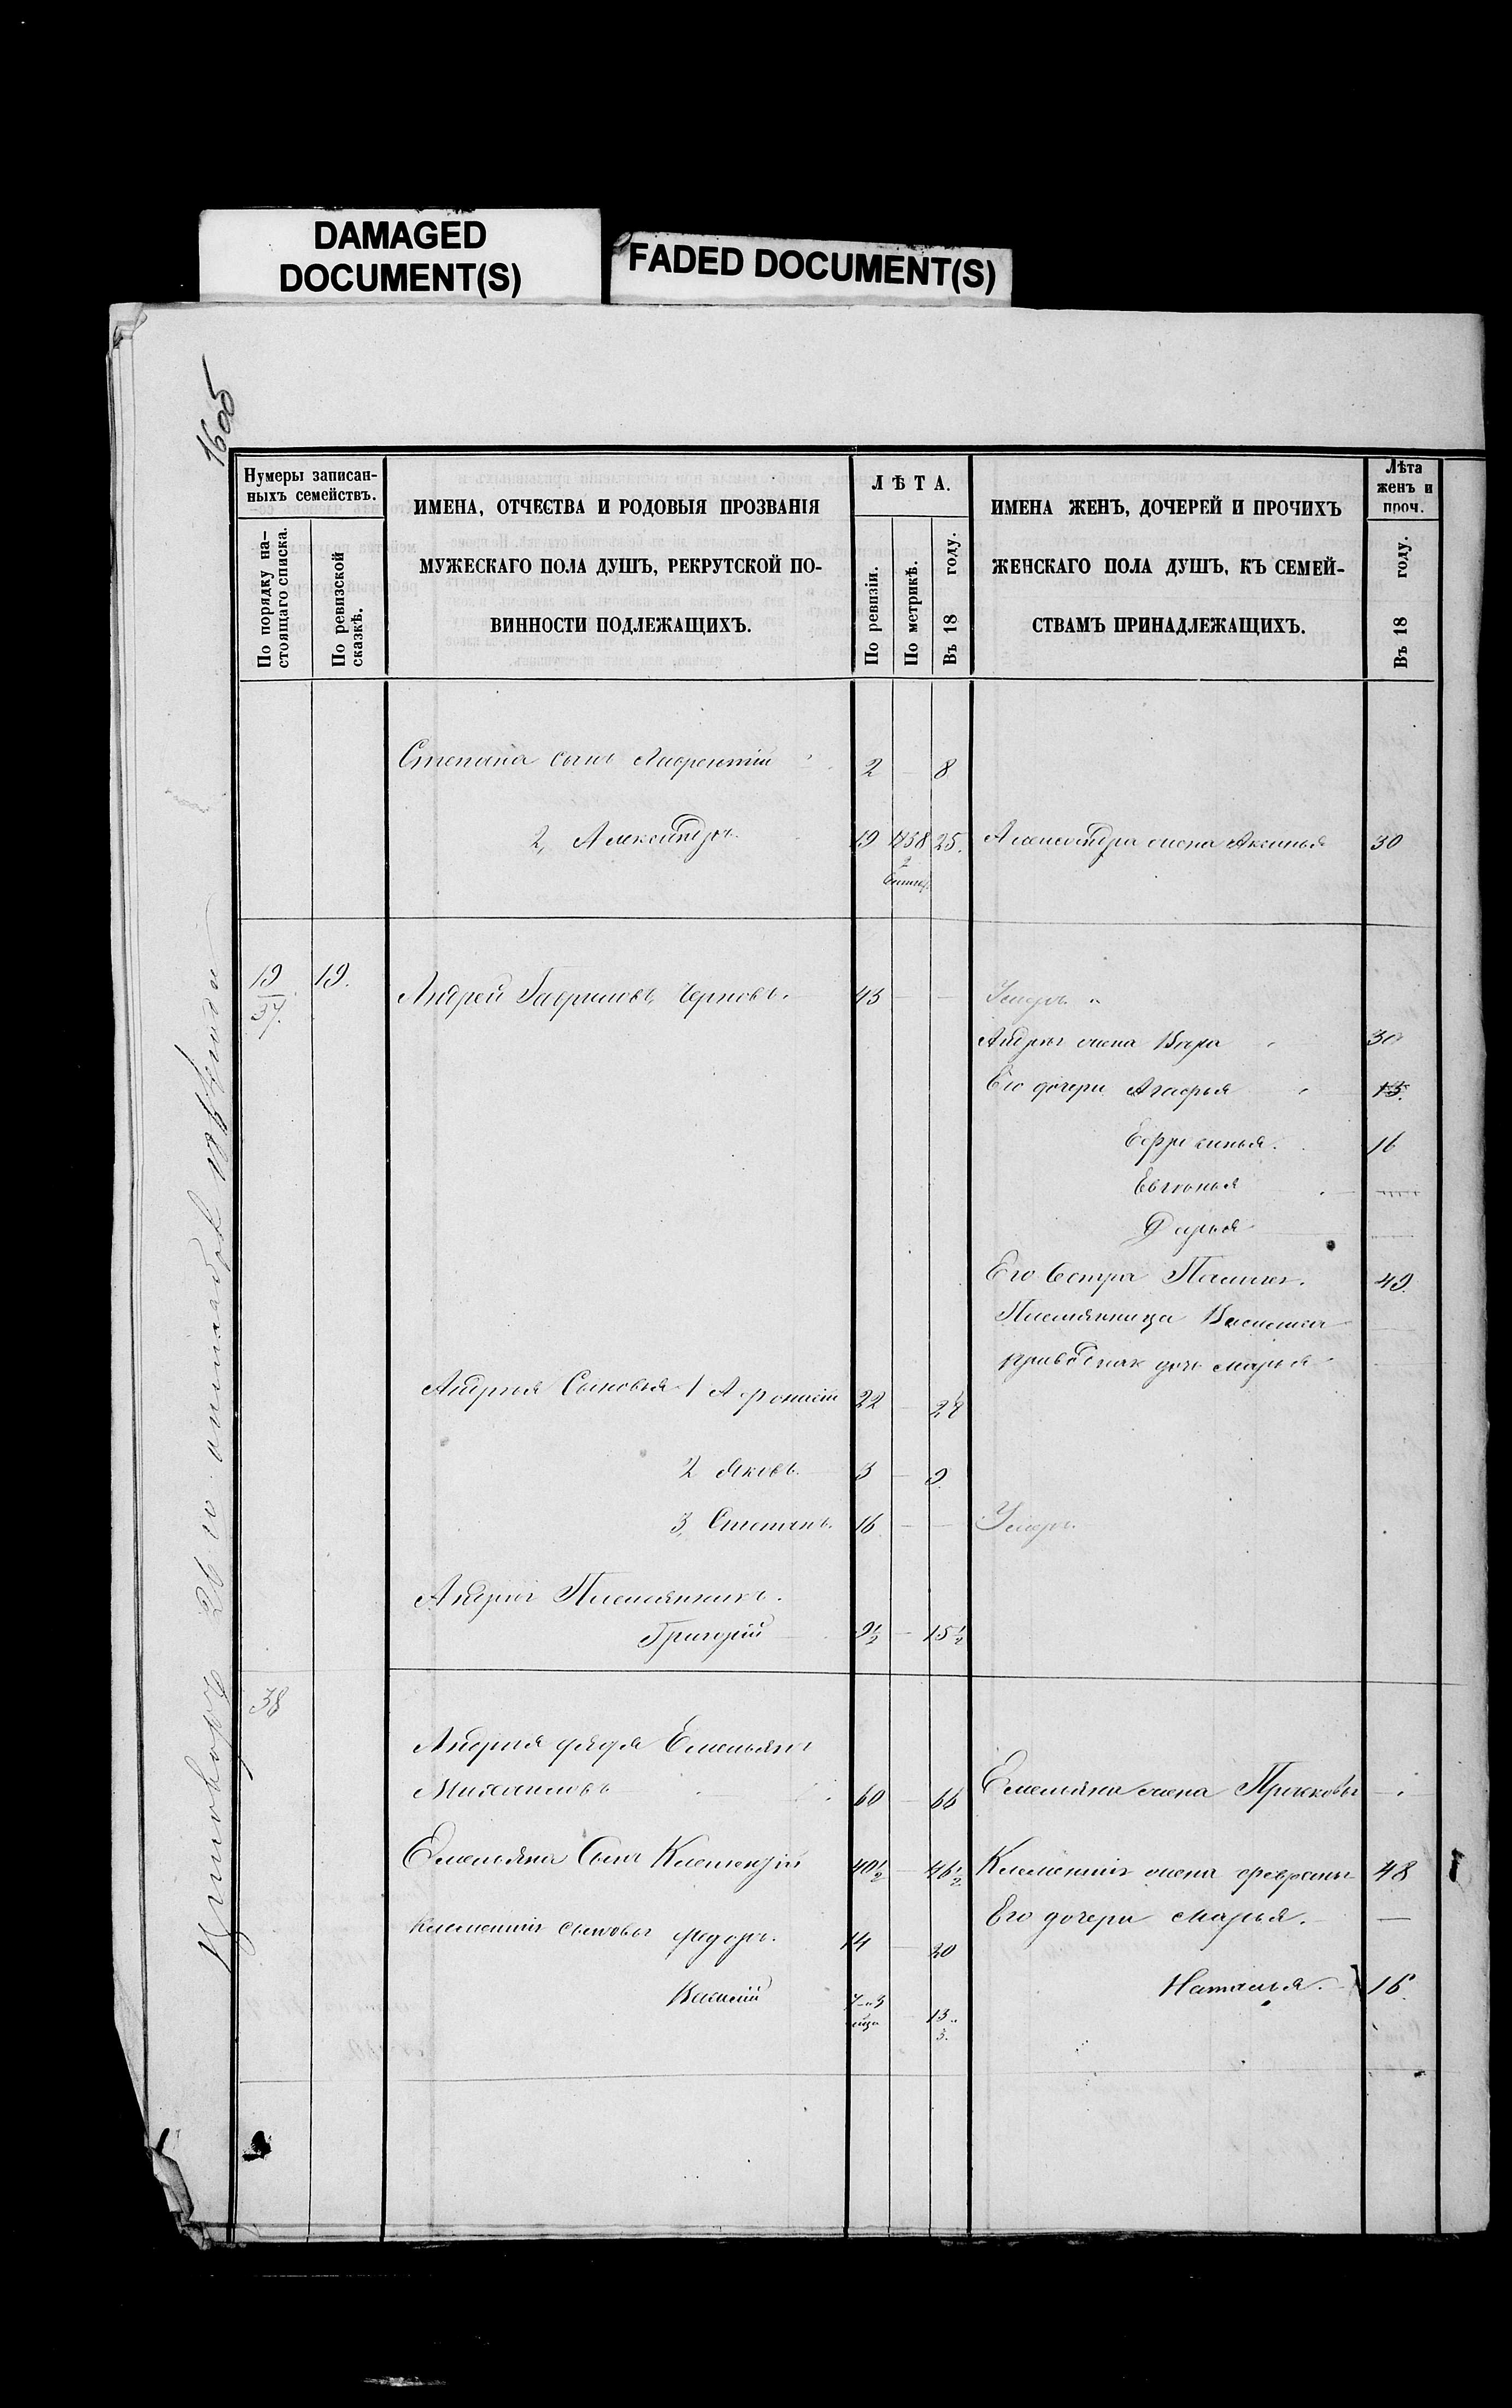 DAMAGED
DOCUMENT(S)
FADED DOCUMENT(S)
1605
Нумеры записан-
ныхъ семействъ.
По порядку на-
стоящаго списка.
По ревизской
сказкѣ.
ИМЕНА, ОТЧЕСТВА И РОДОВЫЯ ПРОЗВАНІЯ
МУЖЕСКАГО ПОЛА ДУШЪ, РЕКРУТСКОЙ ПО-
ВИННОСТИ ПОДЛЕЖАЩИХЪ.
ЛѢТА.
По ревизіи.
По метрикѣ.
Въ 18 году.
ИМЕНА ЖЕНЪ, ДОЧЕРЕЙ И ПРОЧИХЪ
ЖЕНСКАГО ПОЛА ДУШЪ, КЪ СЕМЕЙ-
СТВАМЪ ПРИНАДЛЕЖАЩИХЪ.
Лѣта
женъ и
проч.
Въ 18 году.
Степана сынъ Лаврентій 2 — 8
2, Александръ 19 1838 25. Александра жена Аксинья 30
2
19 19. Андрей Гавриловъ Черновъ. 43 — — Умеръ
37.
Андрея жена Вера 30
Его дочери Агафья 15.
Ефросинья. 16
Евгенья
Дарья
Его Сестра 49.
Племянница
дочь Марья
Андрея Сыновья 1 Афонасій 22 — 28
2 Яковъ 3 — 9.
3, Степанъ. 16 — — Умеръ.
Андрея Племянникъ.
Григорій 9½ — 15½
38
Андрея дядя Емельянъ
Михайловъ 60 — 66 Емельяна жена Прасковья —
Емельяна Сынъ Клементій 40½ — 46½ Клементія жена Февронья 48
Его дочери Марья. —
Клементія сыновья Федоръ. 14 — 20
Наталья. 16.
Василій 7 и 3 13..
3.